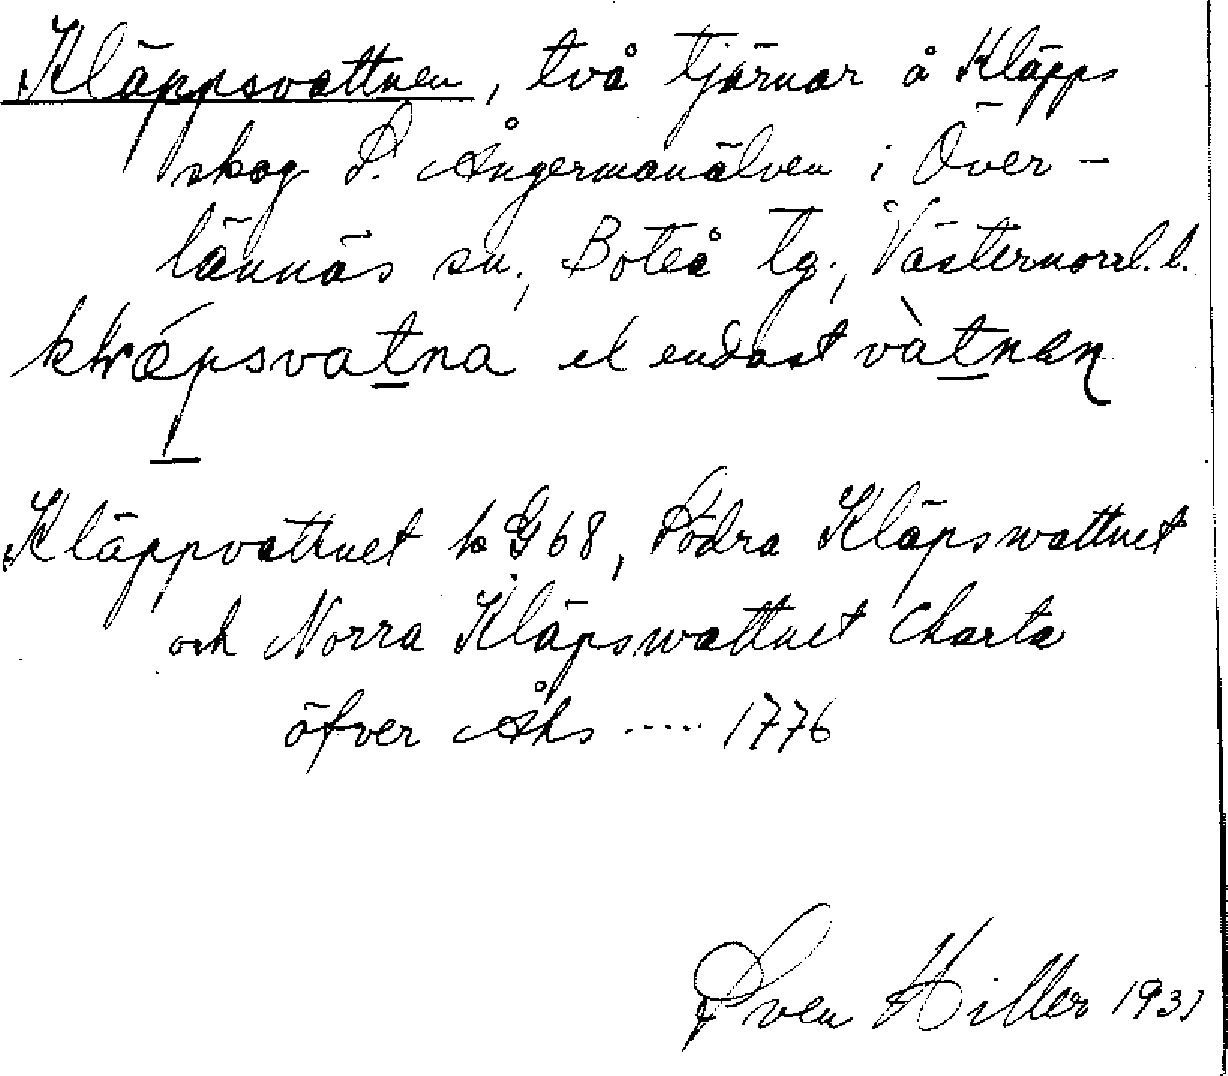 Kläppsvattnen, två tjärnar å Kläpps
skog S. Ångermanälven i Över-
lännäs sn, Boteå tg., Västernorrl. l.
el endast vàtnan
Kläppvattnet k G68, Södra Kläpswattnet
och Norra Kläpswattnet Charta
öfver Åhs ..... 1776
Sven Hiller 1931